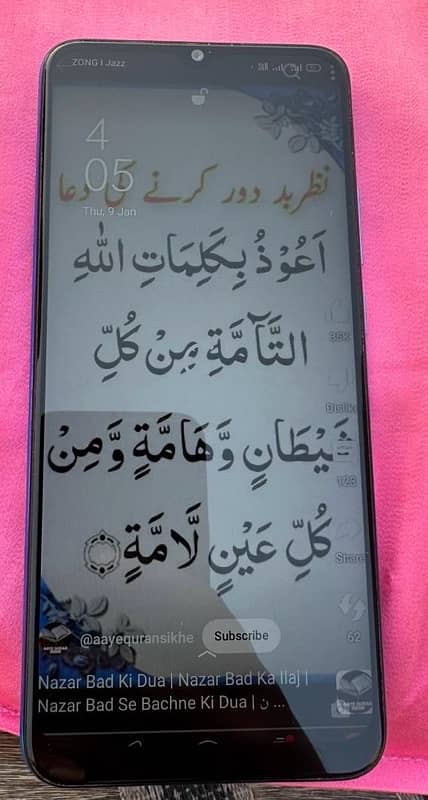 ZONG | Jazz
4
05
Thu, 9 Jan
نظربد دور کرنے کی دعا
اَعُوْذُ بِکَلِمَاتِ اللّٰهِ
التَّآمَّةِ مِنْ کُلِّ
شَیْطَانٍ وَّهَامَّةٍ وَّمِنْ
کُلِّ عَیْنٍ لَّامَّةٍ
35K
Dislike
123
Share
62
@aayequransikhe
Subscribe
Nazar Bad Ki Dua | Nazar Bad Ka Ilaj |
Nazar Bad Se Bachne Ki Dua | ن ...